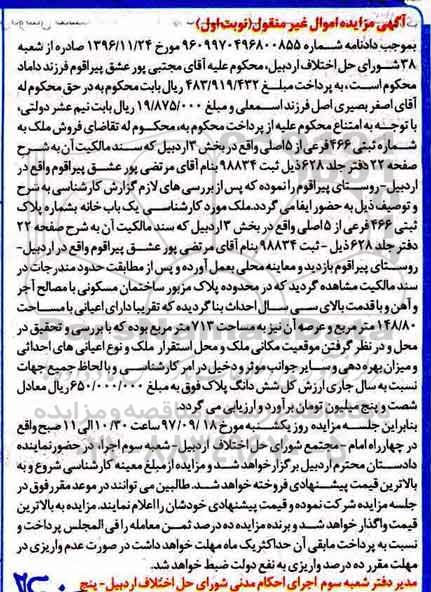 آگهی مزایده اموال غیر منقول (نوبت اول)
بموجب دادنامه شماره ۹۶۰۹۹۷۰۴۹۶۸۰۰۸۵۵ مورخ ۱۳۹۶/۱۱/۲۴ صادره از شعبه
۳۸ شورای حل اختلاف اردبیل، محکوم علیه آقای مجتبی پور عشق پیراقوم فرزند داماد
محکوم است، به پرداخت مبلغ ۴۸۳/۹۱۹/۴۳۲ ریال بابت محکوم به در حق محکوم له
آقای اصغر بصیری اصل فرزند اسمعلی و مبلغ ۱۹/۸۷۵/۰۰۰ ریال بابت نیم عشر دولتی،
با توجه به امتناع محکوم علیه از پرداخت محکوم به، محکوم له تقاضای فروش ملک به
شماره ثبتی ۴۶۶ فرعی از ۵ اصلی واقع در بخش ۳ اردبیل که سند مالکیت آن به شرح
صفحه ۲۲ دفتر جلد ۶۲۸ ذیل ثبت ۹۸۸۳۴ بنام آقای مرتضی پور عشق پیراقوم واقع در
اردبیل- روستای پیراقوم را نموده که پس از بررسی های لازم گزارش کارشناسی به شرح
و توصیف ذیل به حضور ایفا می گردد. ملک مورد کارشناسی یک باب خانه بشماره پلاک
ثبتی ۴۶۶ فرعی از ۵ اصلی واقع در بخش ۳ اردبیل که سند مالکیت آن به شرح صفحه ۲۲
دفتر جلد ۶۲۸ ذیل - ثبت ۹۸۸۳۴ بنام آقای مرتضی پور عشق پیراقوم واقع در اردبیل-
روستای پیراقوم بازدید و معاینه محلی بعمل آورده و پس از مطابقت حدود مندرجات در
سند مالکیت مشاهده گردید که در محدوده پلاک مزبور ساختمان مسکونی با مصالح آجر
و آهن و با قدمت بالای سی سال احداث بنا گردیده که تقریبا دارای اعیانی با مساحت
۱۴۸/۸۰ متر مربع و عرصه آن نیز به مساحت ۷۱۳ متر مربع بوده که با بررسی و تحقیق در
محل و در نظر گرفتن موقعیت مکانی ملک و محل استقرار ملک و نوع اعیانی های احداثی
و میزان بهره دهی و سایر جوانب موثر و دخیل در امر کارشناسی و با لحاظ جمیع جهات
نسبت به سال جاری ارزش کل شش دانگ پلاک فوق به مبلغ ۶۵۰/۰۰۰/۰۰۰ ریال معادل
شصت و پنج میلیون تومان برآورد و ارزیابی می گردد.
بنابراین جلسه مزایده روز یکشنبه مورخ ۹۷/۰۹/۱۸ ساعت ۱۰/۳۰ الی ۱۱ صبح واقع
در چهارراه امام - مجتمع شورای حل اختلاف اردبیل - شعبه سوم اجرا در حضور نماینده
دادستان محترم اردبیل برگزار خواهد شد و مزایده از مبلغ معینه کارشناسی شروع و به
بالاترین قیمت پیشنهادی فروخته خواهد شد. طالبین می توانند در موعد مقرر فوق در
جلسه مزایده شرکت نموده و قیمت پیشنهادی خودشان را اعلام نمایند. مزایده به بالاترین
قیمت واگذار خواهد شد و برنده مزایده ده درصد ثمن معامله را فی المجلس پرداخت و
نسبت به پرداخت مابقی آن حداکثر یک ماه مهلت خواهد داشت در صورت عدم واریزی در
مهلت مقرر ده درصد واریزی به نفع دولت ضبط خواهد شد.
مدیر دفتر شعبه سوم اجرای احکام مدنی شورای حل اختلاف اردبیل- پنج